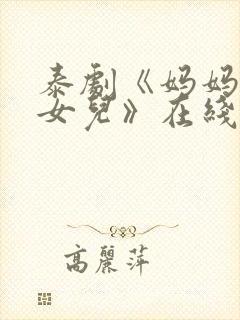 泰劇《妈妈
女兒》在綫
高麗萍